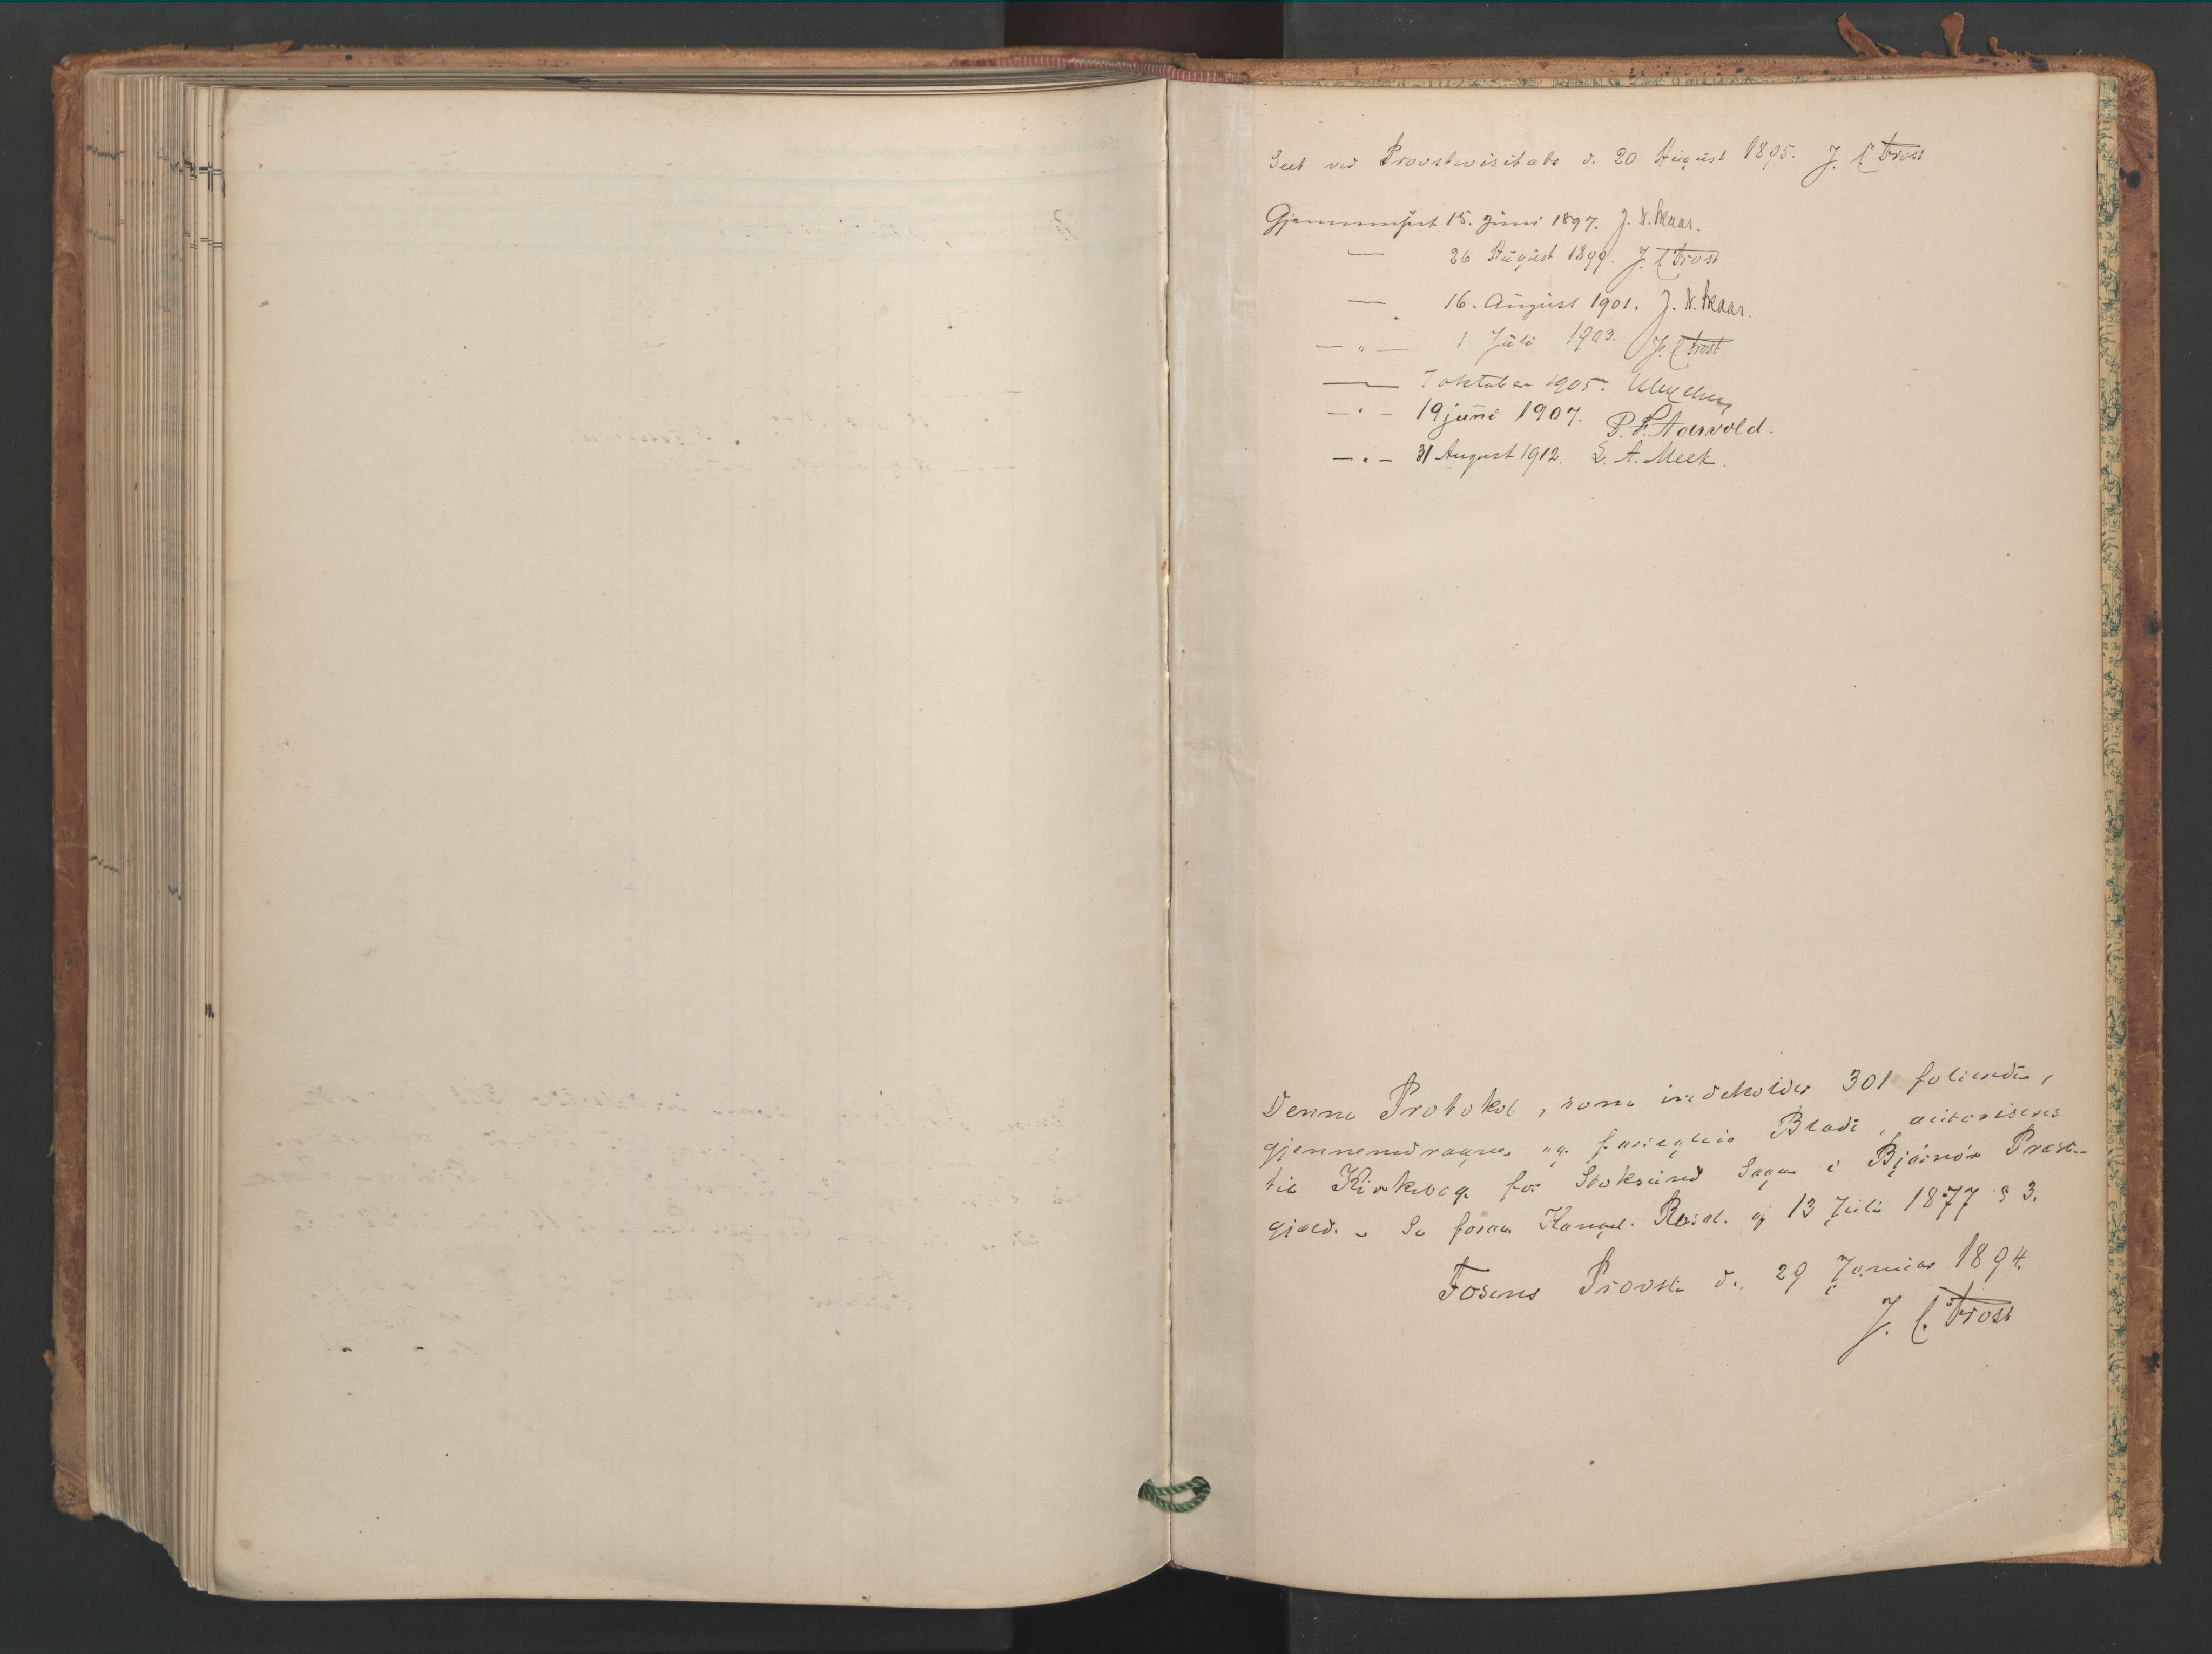 Seet ved Provstevisitats d. 20 August 1895. J. C. Trost
Gjennemseet 15. Juni 1897. J. N. Skaar.
— 26 August 1899. J. C. Trost
— 16. August 1901. J. N. Skaar.
— " — 1 Juli 1903. J. C. Trost
— 7 oktober 1905.
— " — 19 juni 1907. P. L. Aarvold.
— " — 31 August 1912. L. A. Meek.
Denne Protokol, som indeholder 301 folierede,
gjennemdragne og forseglede Blade, autoriseres
til Kirkebog for Stoksund Sogn i Bjørnør Præste-
gjæld. Se foran Kongel. Resol. af 13 Juli 1877 § 3.
Fosens Provsti d. 29 Januar 1894.
J. C. Trost